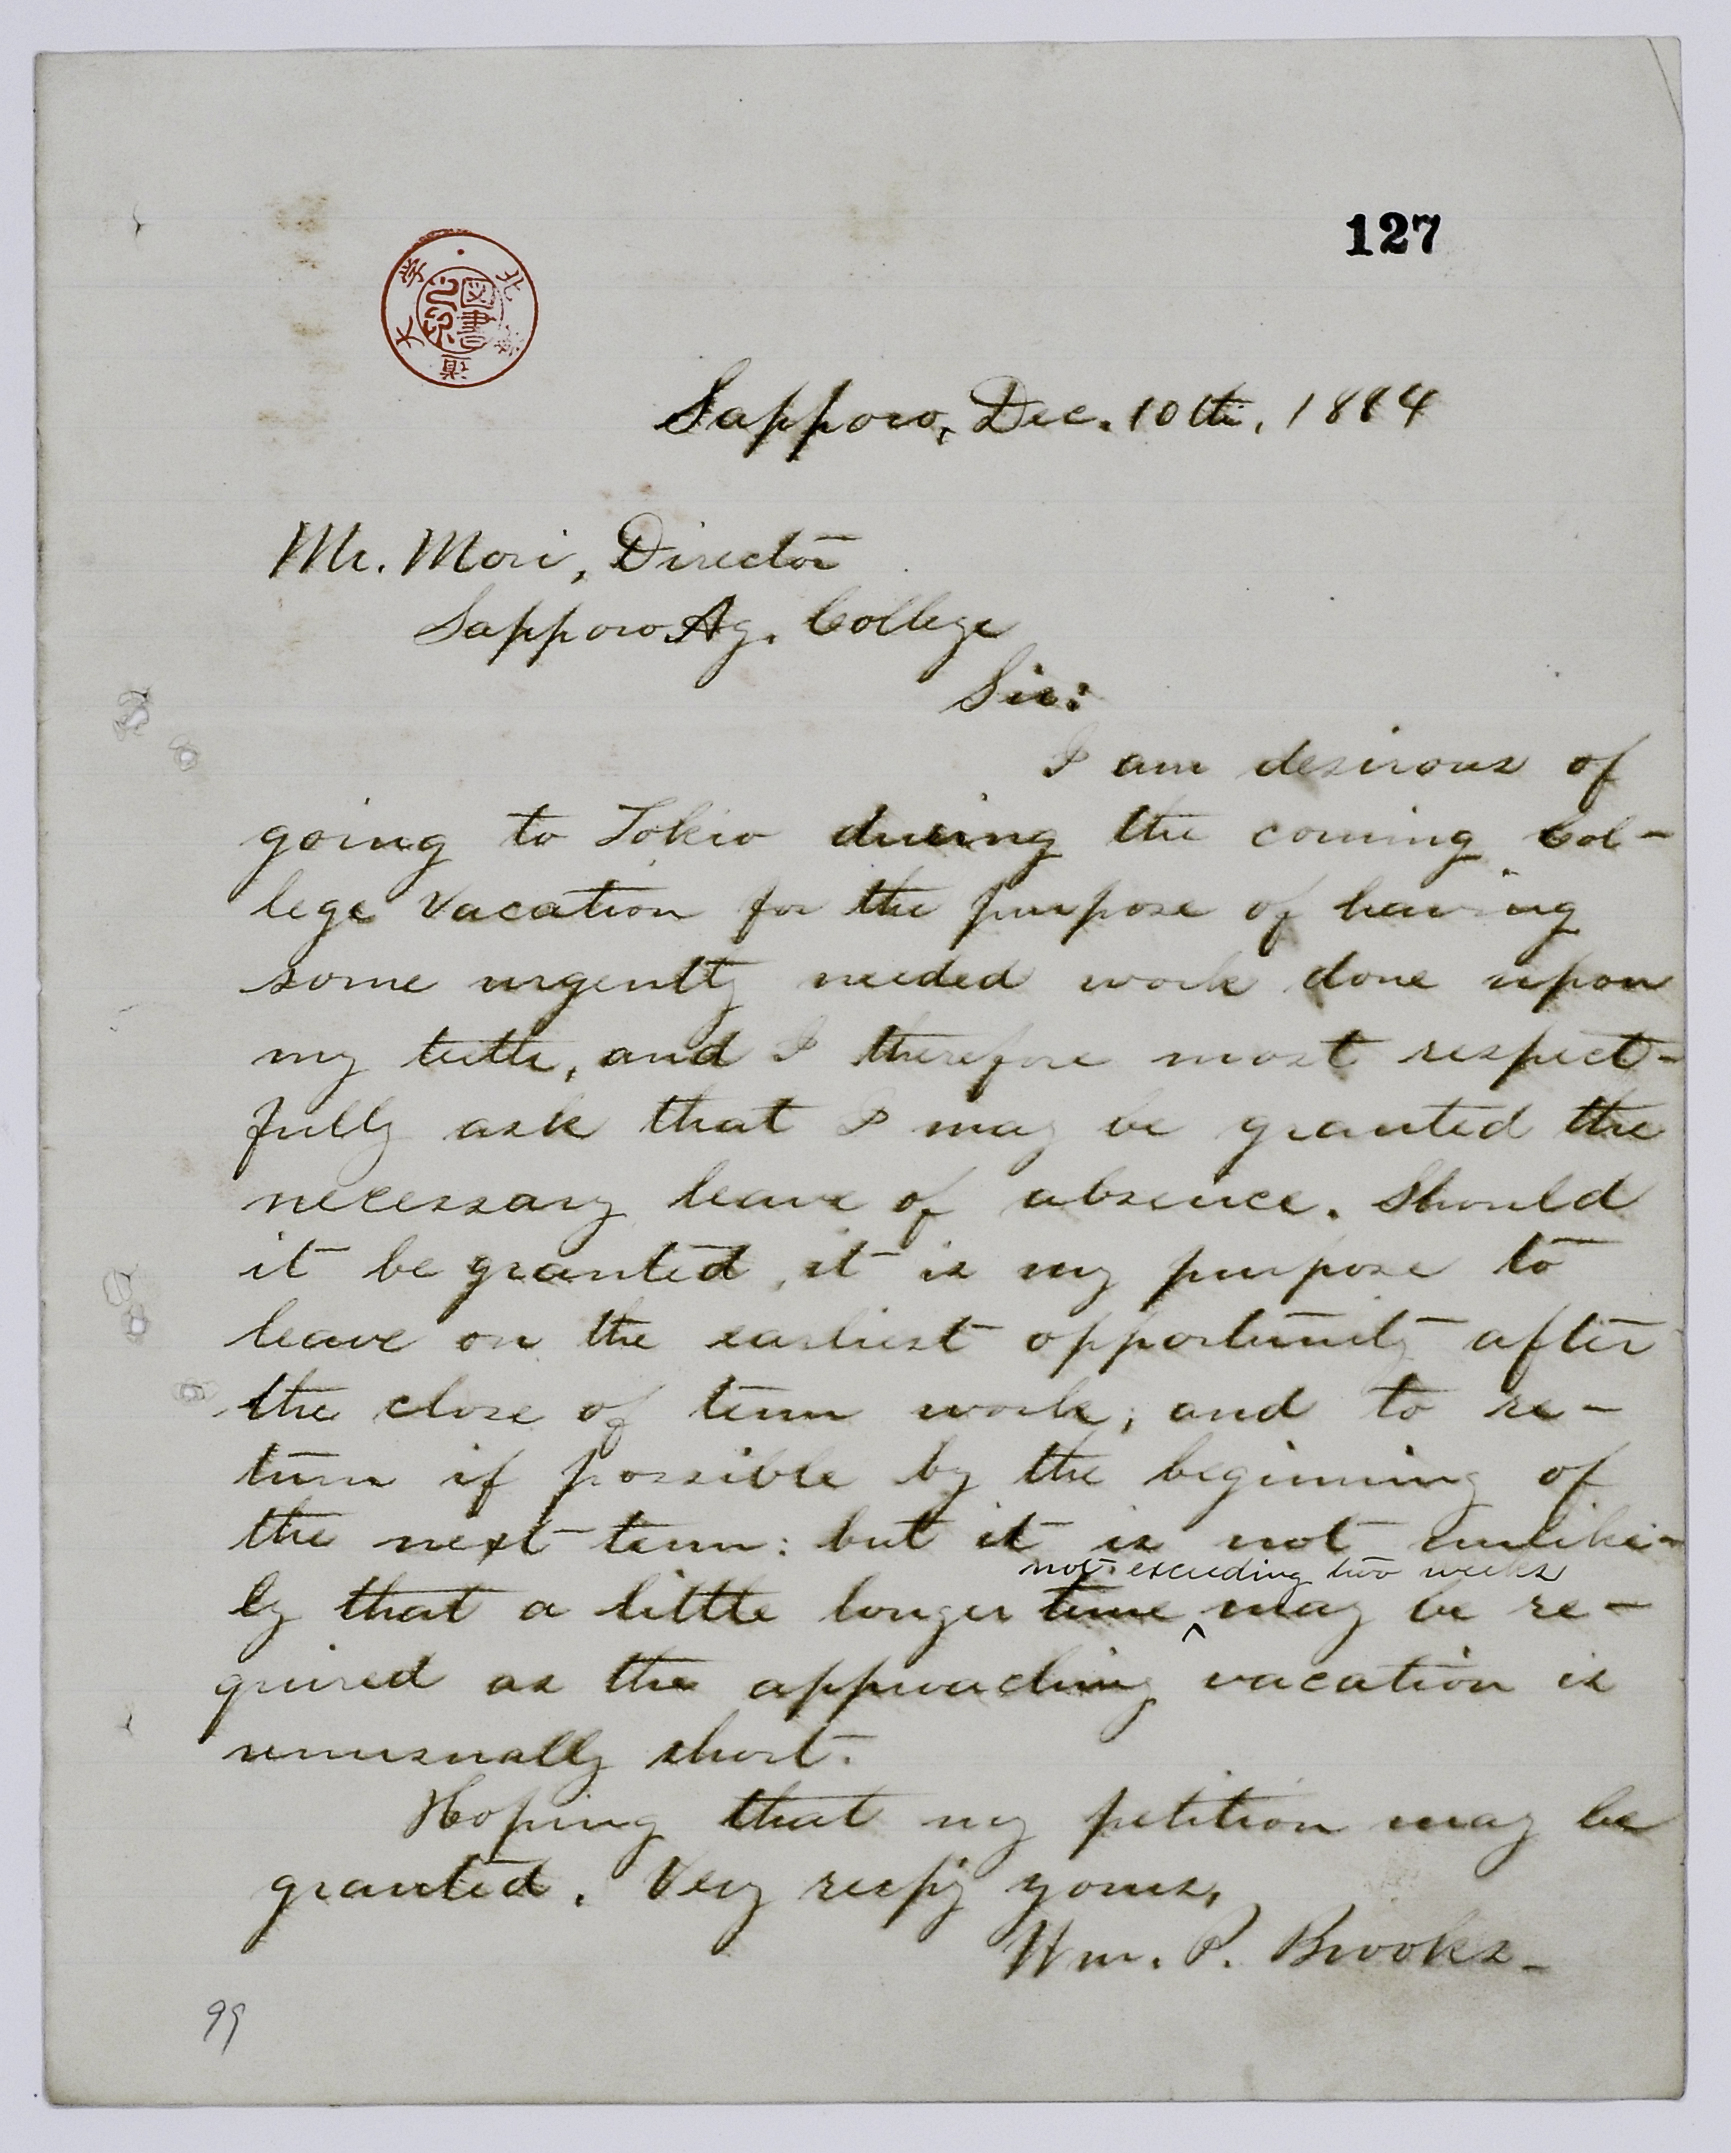 127
北海道大学
図書之印
Sapporo, Dec. 10th, 1884
Mr. Mori, Director
Sapporo Ag. College
Sir:
I am desirous of
going to Tokio during the coming Col-
lege Vacation for the purpose of having
some urgently needed work done upon
my teeth, and I therefore most respect-
fully ask that I may be granted the
necessary leave of absence. Should
it be granted, it is my purpose to
leave on the earliest opportunity after
the close of term work; and to re-
turn if possible by the beginning of
the next term: but it is not unlike-
not exceeding two weeks
ly that a little longer time ^ may be re-
quired as the approaching vacation is
unusually short.
Hoping that my petition may be
granted. Very resp'y yours,
Wm. P. Brooks-
99